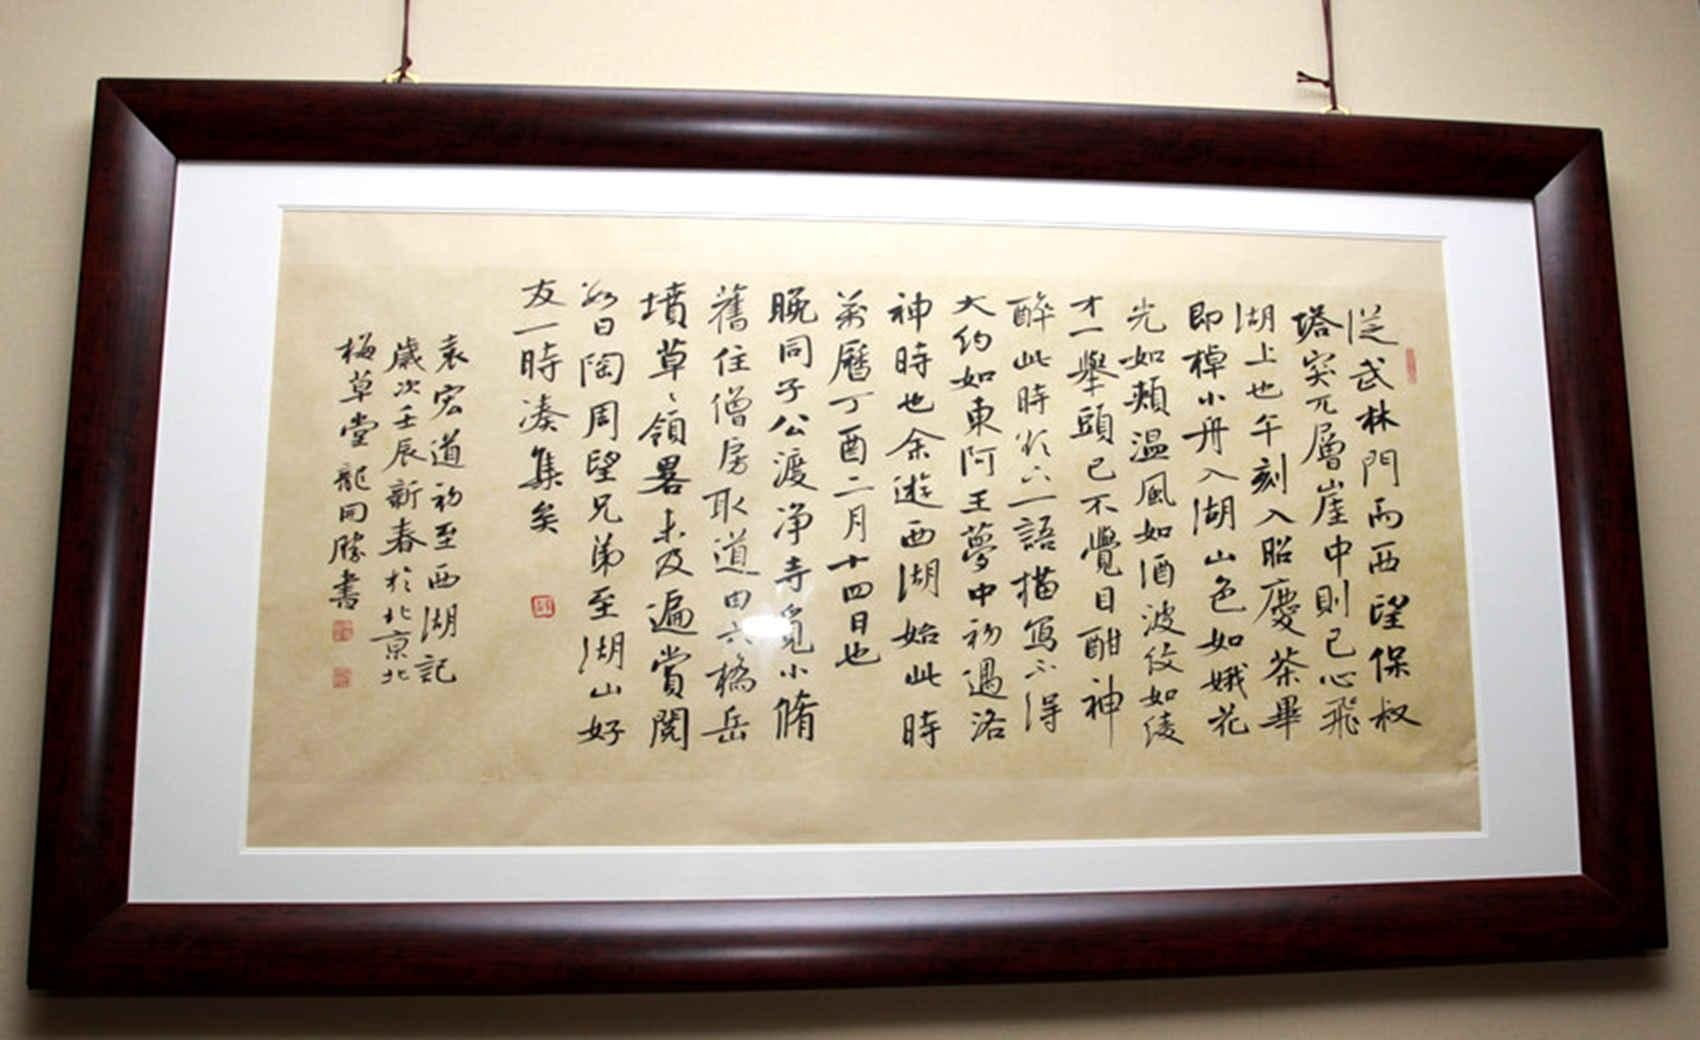 從武林門而西望保叔
塔突兀層崖中則已心飛
湖上也午刻入昭慶茶畢
即棹小舟入湖山色如娥花
光如頰溫風如酒波紋如綾
才一舉頭已不覺目酣神
醉此時欲下一語描寫不得
大約如東阿王夢中初遇洛
神時也余遊西湖始此時
萬曆丁酉二月十四日也
晚同子公渡净寺覓小脩
舊住僧房取道由六橋岳
墳草〻領畧未及遍賞閱
日陶周望兄弟至湖山好
友一時湊集矣
袁宏道初至西湖記
歲次壬辰新春於北京北
梅草堂龍開勝書